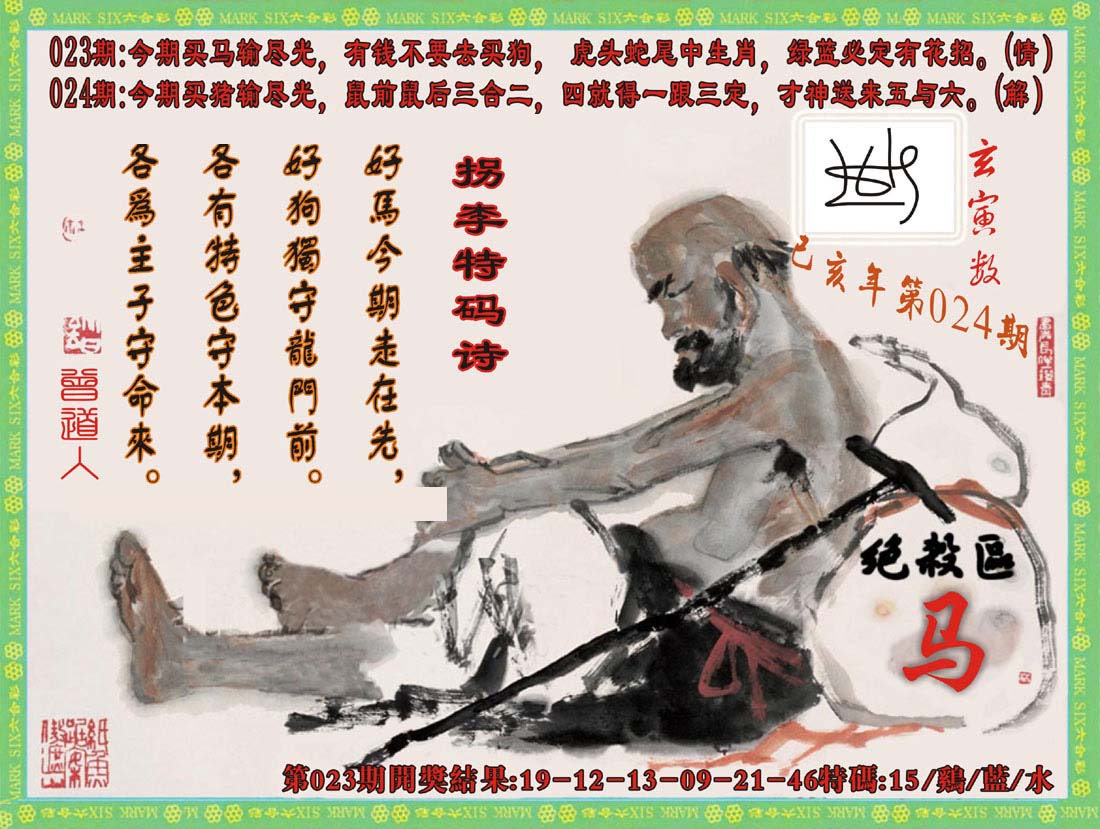 MARK SIX六合彩
023期:今期买马输尽光，有钱不要去买狗，虎头蛇尾中生肖，绿蓝必定有花招。(情)
024期:今期买猪输尽光，鼠前鼠后三合二，四就得一跟三定，才神送来五与六。(解)
玄寅数
己亥年第024期
拐李特码诗
好馬今期走在先，
好狗獨守龍門前。
各有特色守本期，
各爲主子守命來。
曾道人
绝殺區
马
第023期開獎結果:19-12-13-09-21-46特碼:15/鷄/藍/水